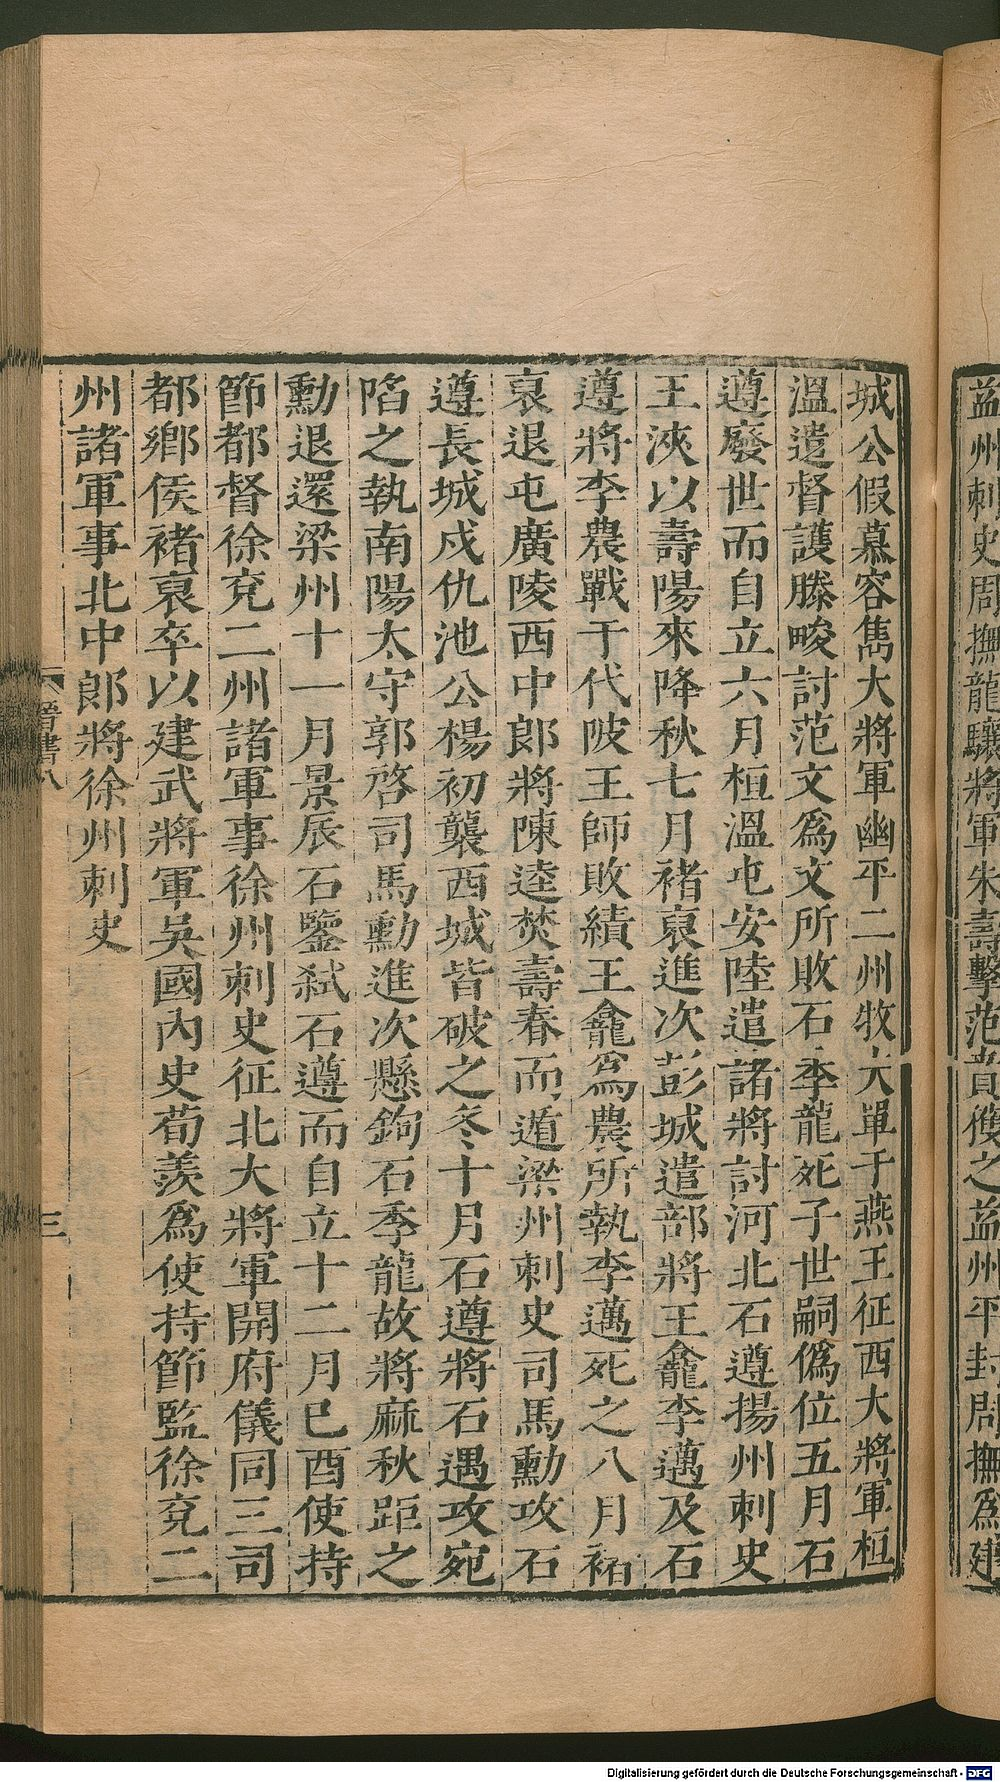 益州刺史周撫龍驤將軍朱壽擊范賁獲之益州平封周撫爲建
城公假慕容雋大將軍幽平二州牧大單于燕王征西大將軍桓
溫遣督護滕畯討范文爲文所敗石季龍死子世嗣僞位五月石
遵廢世而自立六月桓溫屯安陸遣諸將討河北石遵揚州刺史
王浹以壽陽來降秋七月褚裒進次彭城遣部將王龕李邁及石
遵將李農戰于代陂王師敗績王龕爲農所執李邁死之八月褚
裒退屯廣陵西中郎將陳逵焚壽春而遁梁州刺史司馬勳攻石
遵長城戍仇池公楊初襲西城皆破之冬十月石遵將石遇攻宛
陷之執南陽太守郭啓司馬勳進次懸鉤石季龍故將麻秋距之
勳退還梁州十一月景辰石鑒弒石遵而自立十二月巳酉使持
節都督徐兗二州諸軍事徐州刺史征北大將軍開府儀同三司
都鄉侯褚裒卒以建武將軍吳國內史荀羨爲使持節監徐兗二
州諸軍事北中郎將徐州刺史
晉書八
三
Digitalisierung gefördert durch die Deutsche Forschungsgemeinschaft - DFG